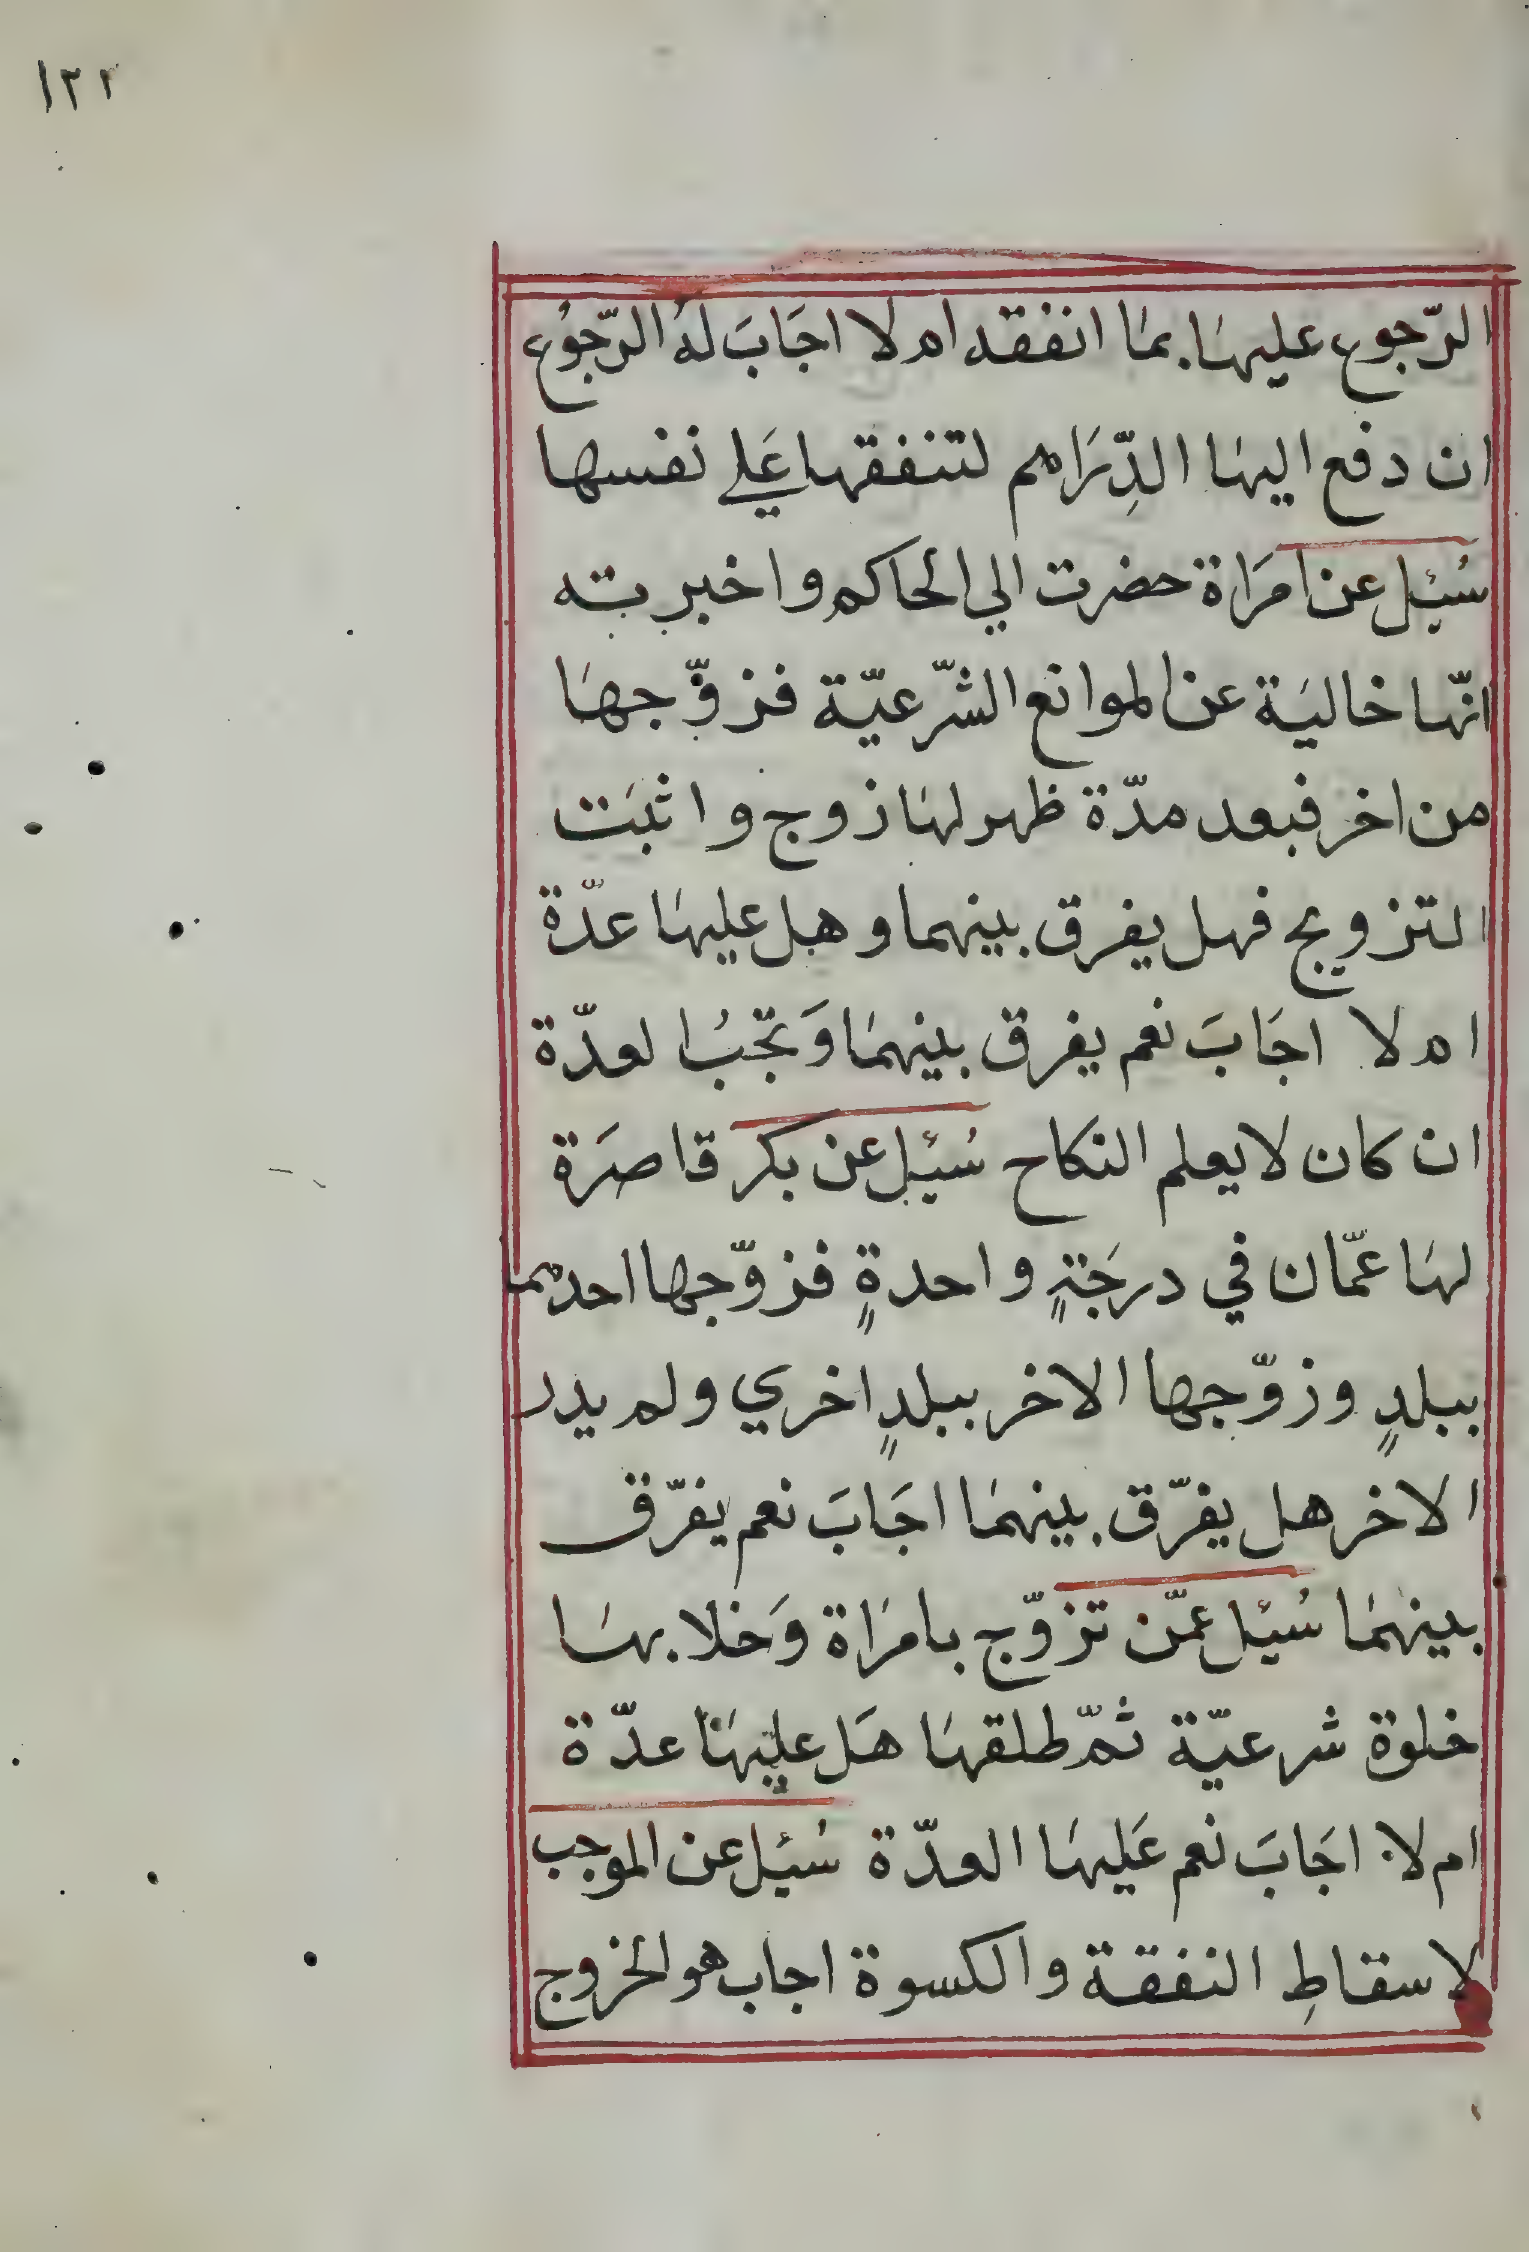 ١٢٢
الرّجوع عليهَا بمَا انفقه ام لا اجَابَ لهُ الرّجوُع
ان دفع اليهَا الدِّرَاهم لتنفقها عَلي نفسها
سُئِل عن امرَاة حضرت الي الحاكم واخبرته
انّها خاليَة عن الموانع الشّرعيّة فزوّجهَا
من اخر فبعد مدّة ظهر لهَا زوج واثبَت
التزويج فهل يفرق بينهما وهل عليهَا عدّة
ام لا اجَابَ نعم يفرق بينهمَا وَتجّبُ العدّة
ان كان لا يعلم النكاح سُئِل عن بكر قاصرَة
لهَا عمّان في درجَةٍ واحدةٍ فزوّجها احدهما
ببلدٍ وزوّجها الاخر ببلدٍ اخري ولم يدر
الاخر هل يفرّق بينهمَا اجَابَ نعم يفرّق
بينهمَا سُئِل عمّن تزوّج بامرَاة وَخلا بهَا
خلوة شرعيّة ثمّ طلقهَا هَل عليهَا عدّة
ام لا اجَابَ نعم عَليهَا العدّة سُئِل عن الموجب
لاسقاطِ النفقة والكسوة اجاب هو الخروج